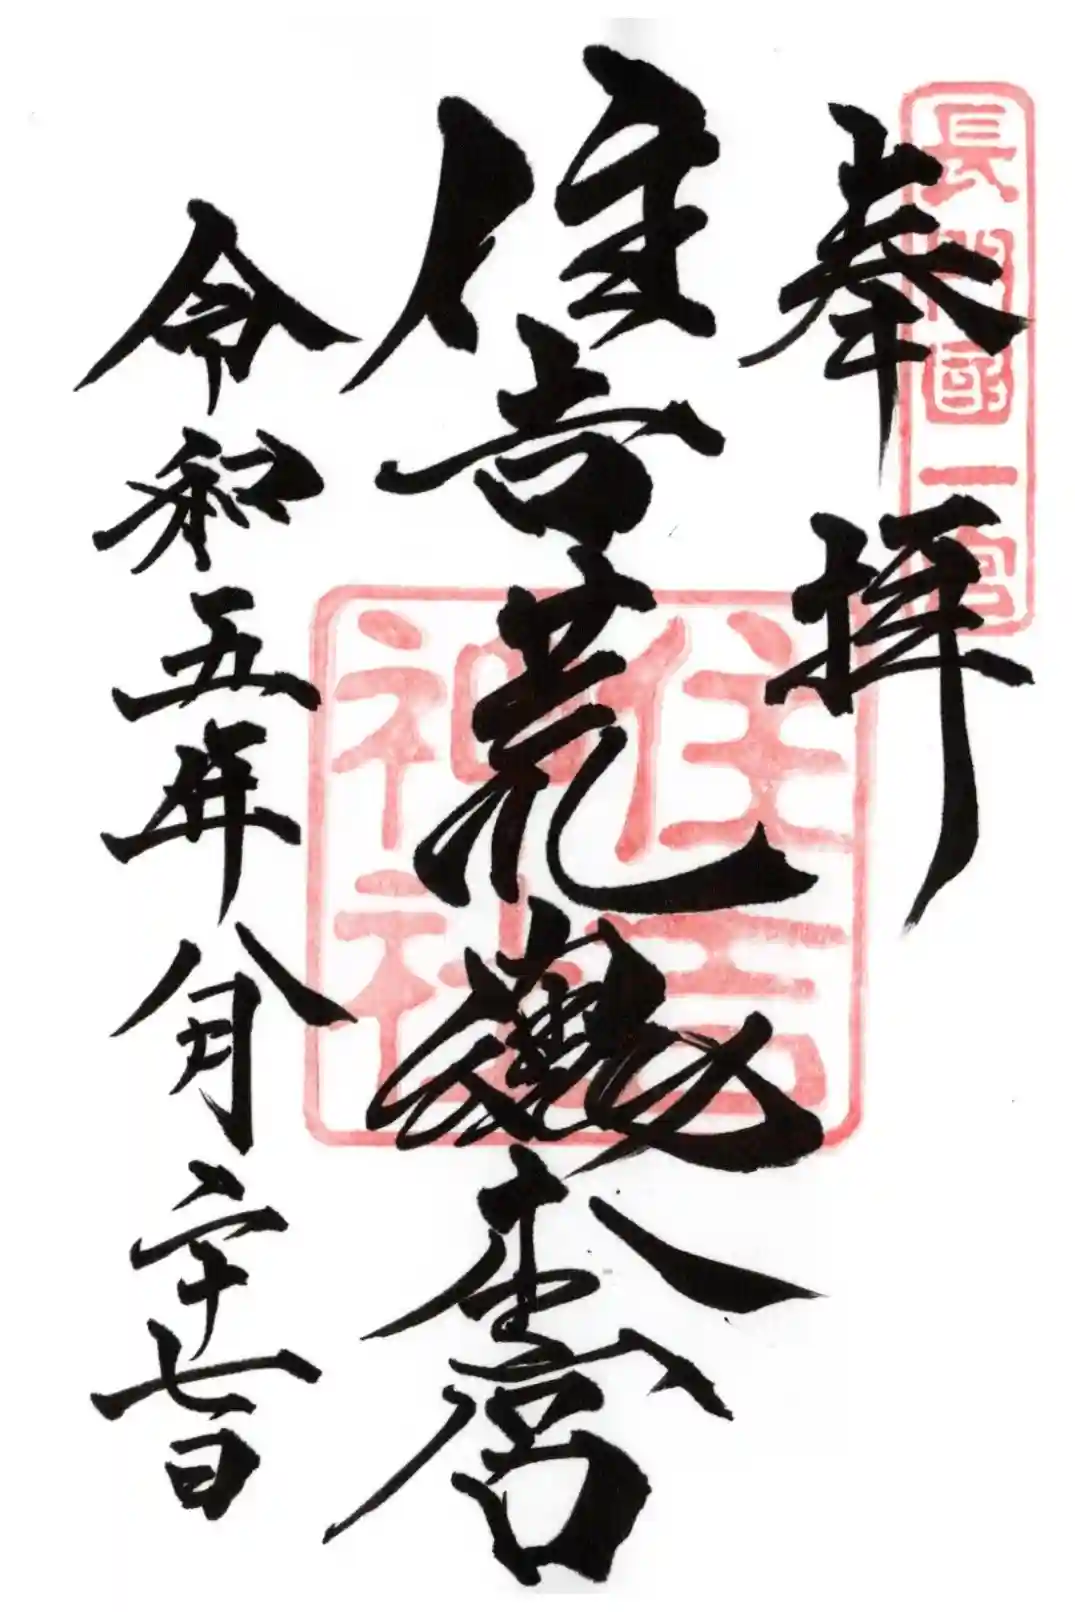 長門国一宮
奉拝
住吉荒魂本宮
住吉
神社
令和五年八月二十七日